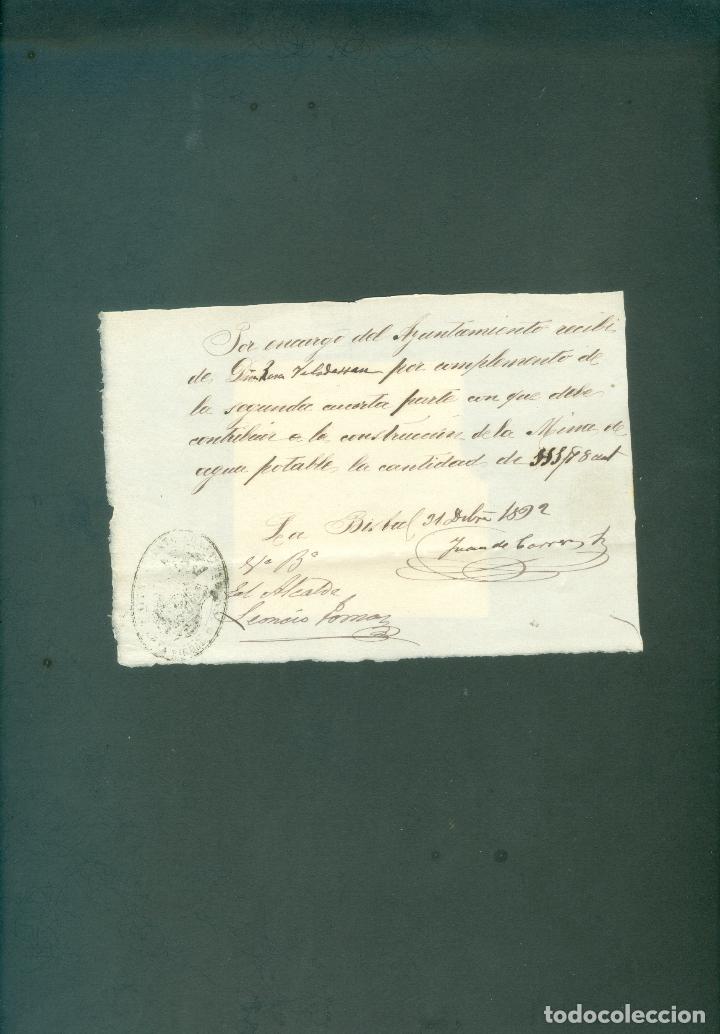 Por encargo del Ayuntamiento recibi
de Dña Rosa por complemento de
la segunda cuarta parte con que debe
contribuir a la construcción de la Mina de
agua potable, la cantidad de
La Bisbal 31 Dbre 1892
Juan de
Vº Bº
El Alcalde
Leoncio
todocoleccion
todocoleccion.net